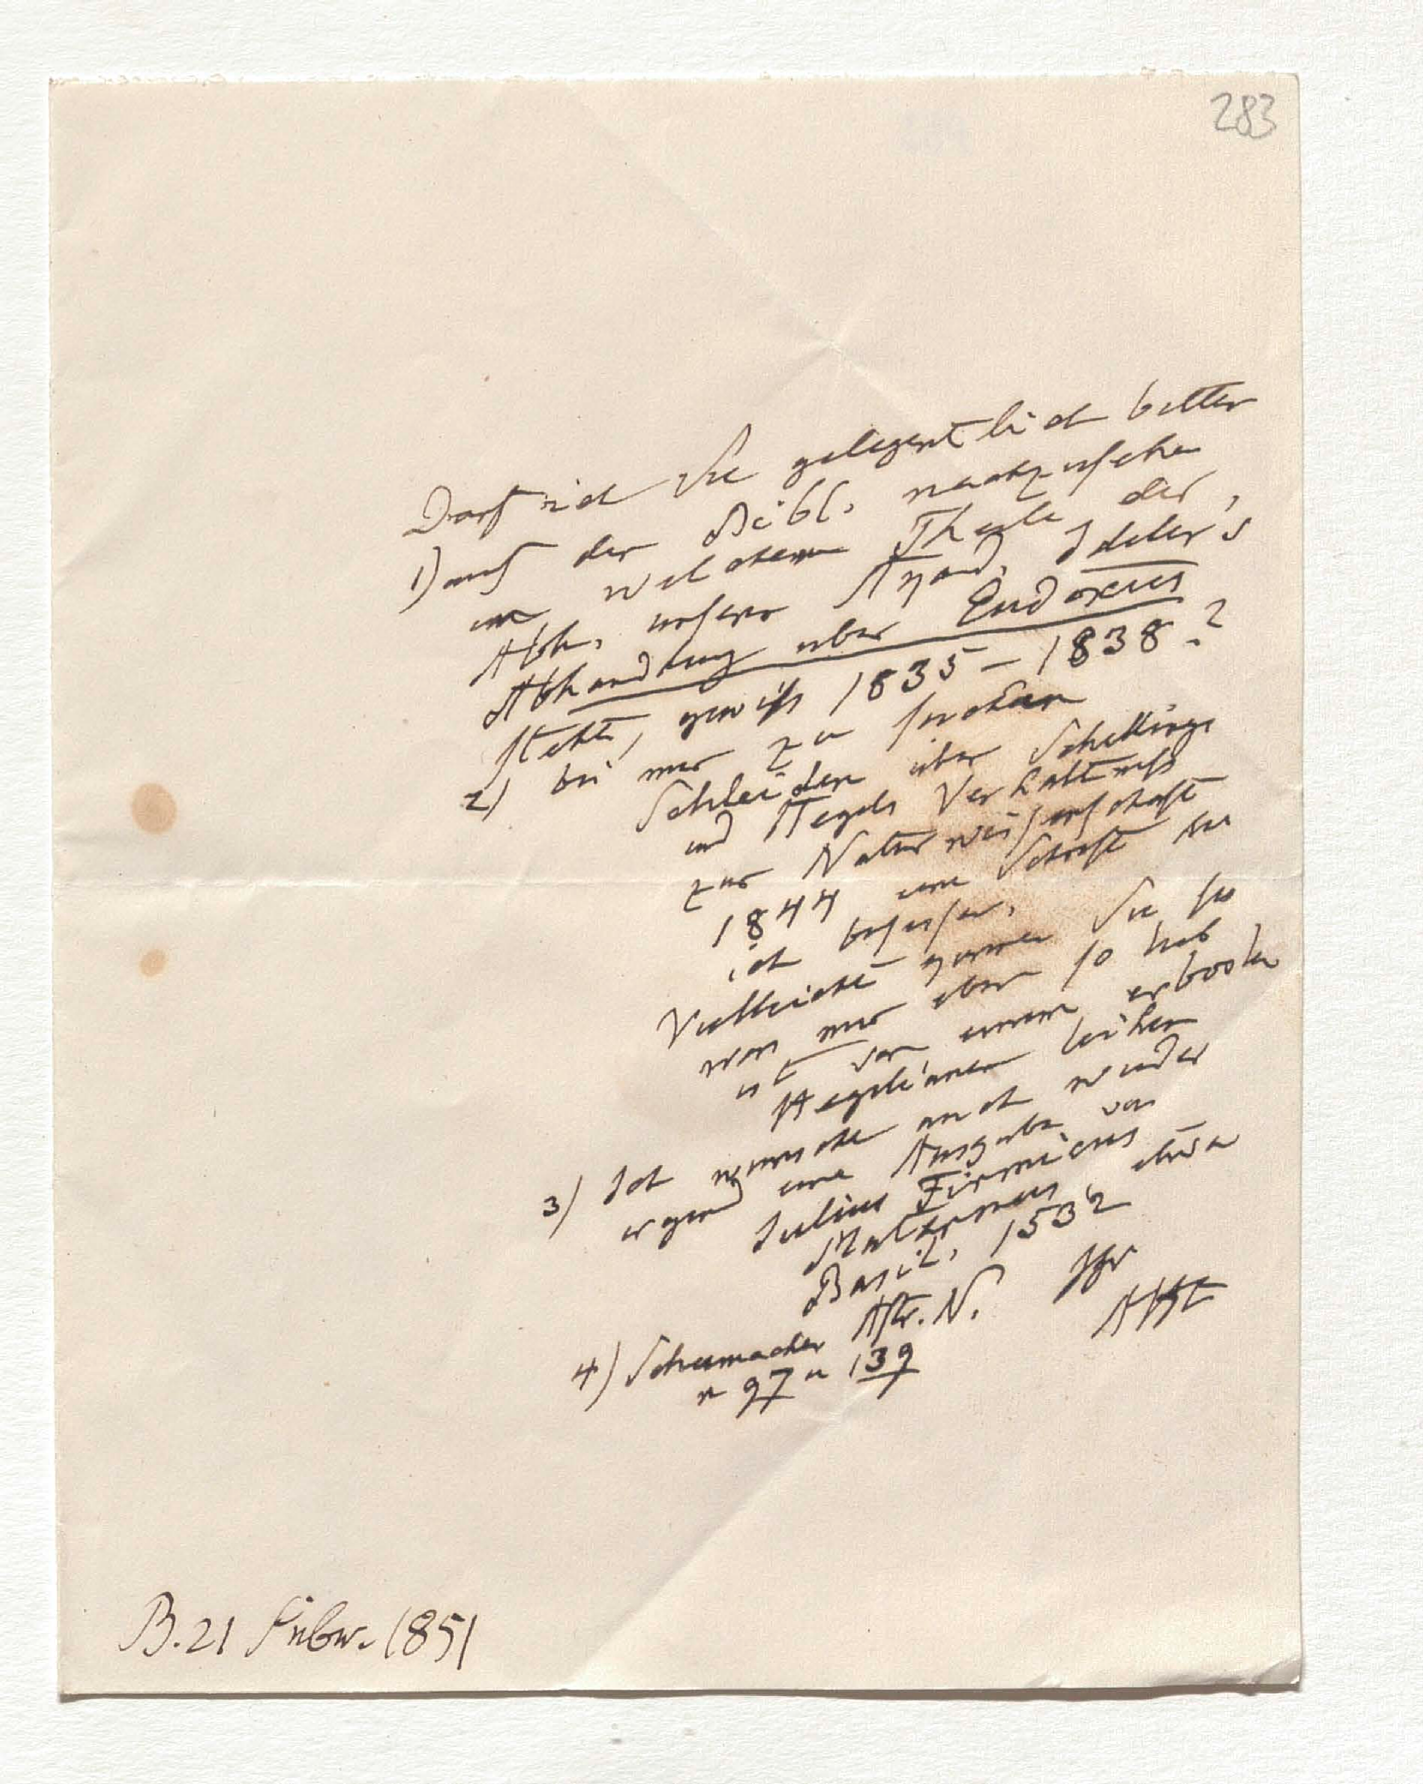 283
Darf ich Sie gelegentlich bitten
1) auf der Bibl. nachzusehen
in welchem Theile der
Abh. unserer Akad. Ideler's
Abhandlung über Eudoxus
steht, gewiß 1835–1838?
2) bei mir zu suchen
Schleiden über Schellings
und Hegels Verhältniß
zur Naturwissenschaft
1844 eine Schrift die
ich besize.
Vielleicht können Sie sie
von mir oder so
ist von einem erbosten
Hegelianer leihen
3) Ich wünschte auch wieder
irgend eine Ausgabe von
Julius Firmicus
Maternus, etwa
Basil. 1532
4) Schumacher Astr. N.
n 97 u 139
Ihr
AHt
B. 21 Febr. 1851